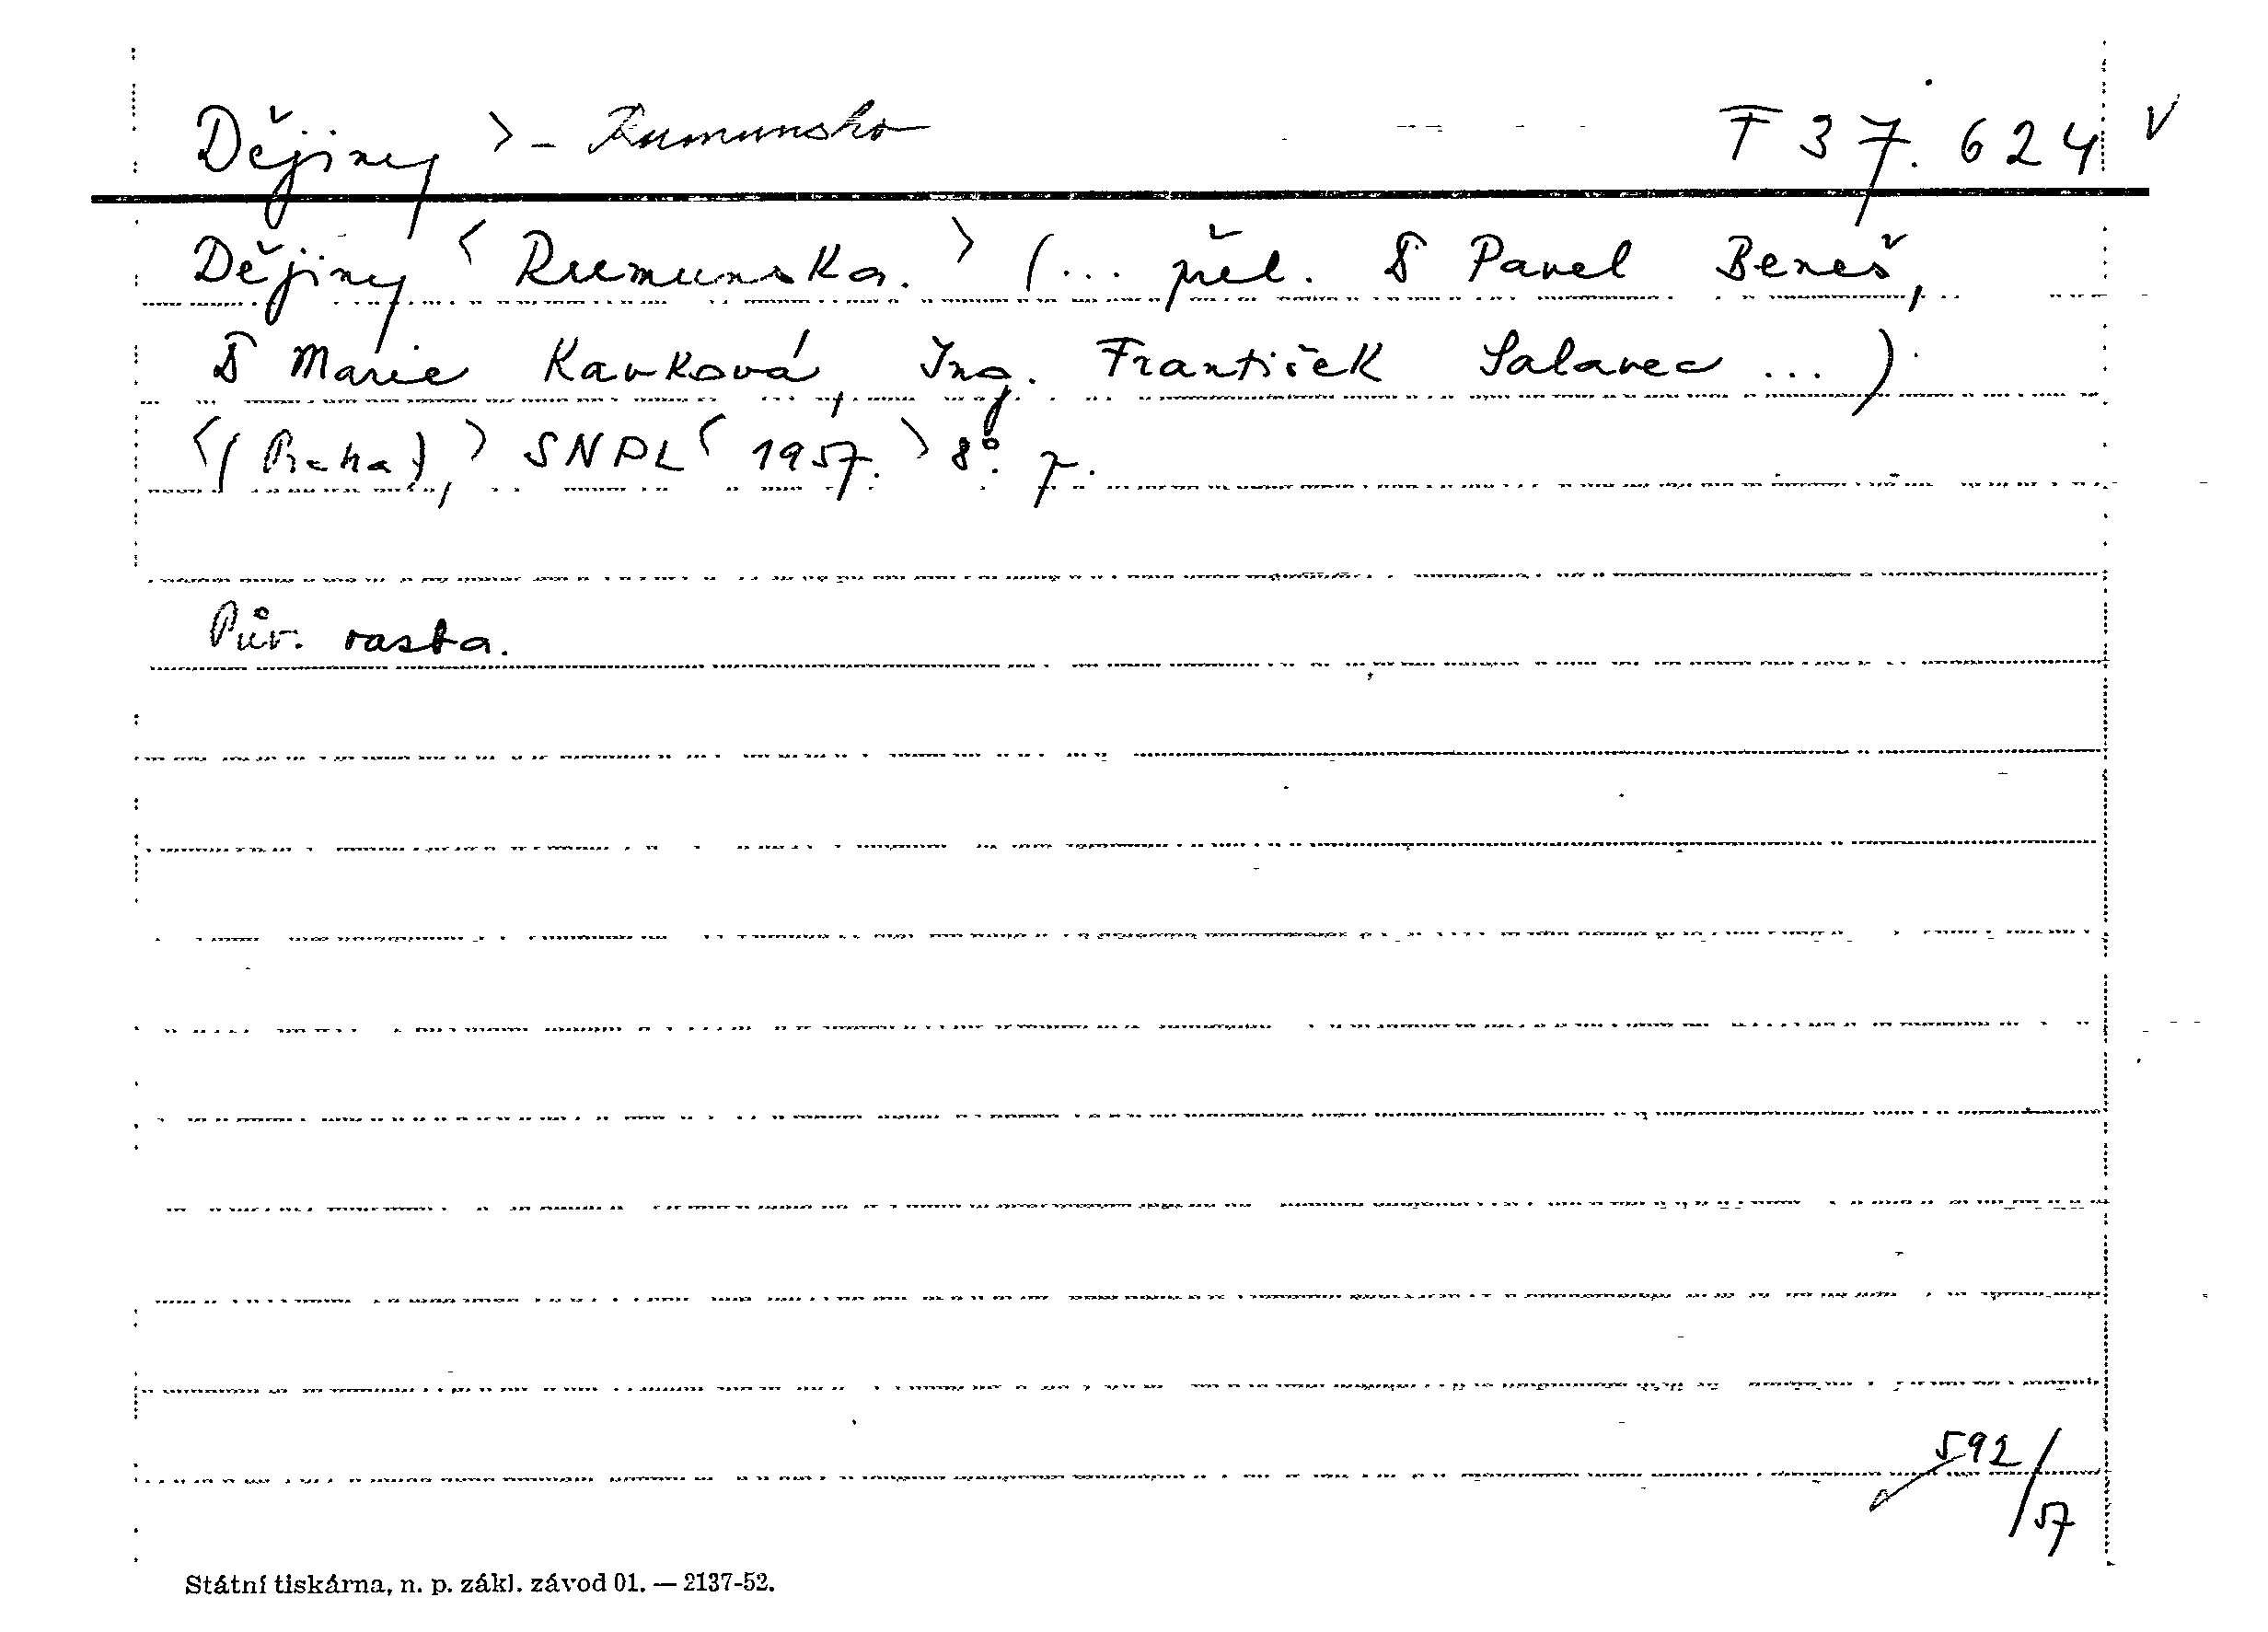 Dějiny > - Rumunsko F 37.624 V
Dějiny < Rumunska. > (... přel. D Pavel Beneš,
D Marie Kavková, Ing. František Salavec ...)
<(Praha), > SNPL < 1957. > 8°. 7.
Pův. vazba.
592/57
Státní tiskárna, n. p. zákl. závod 01. — 2137-52.